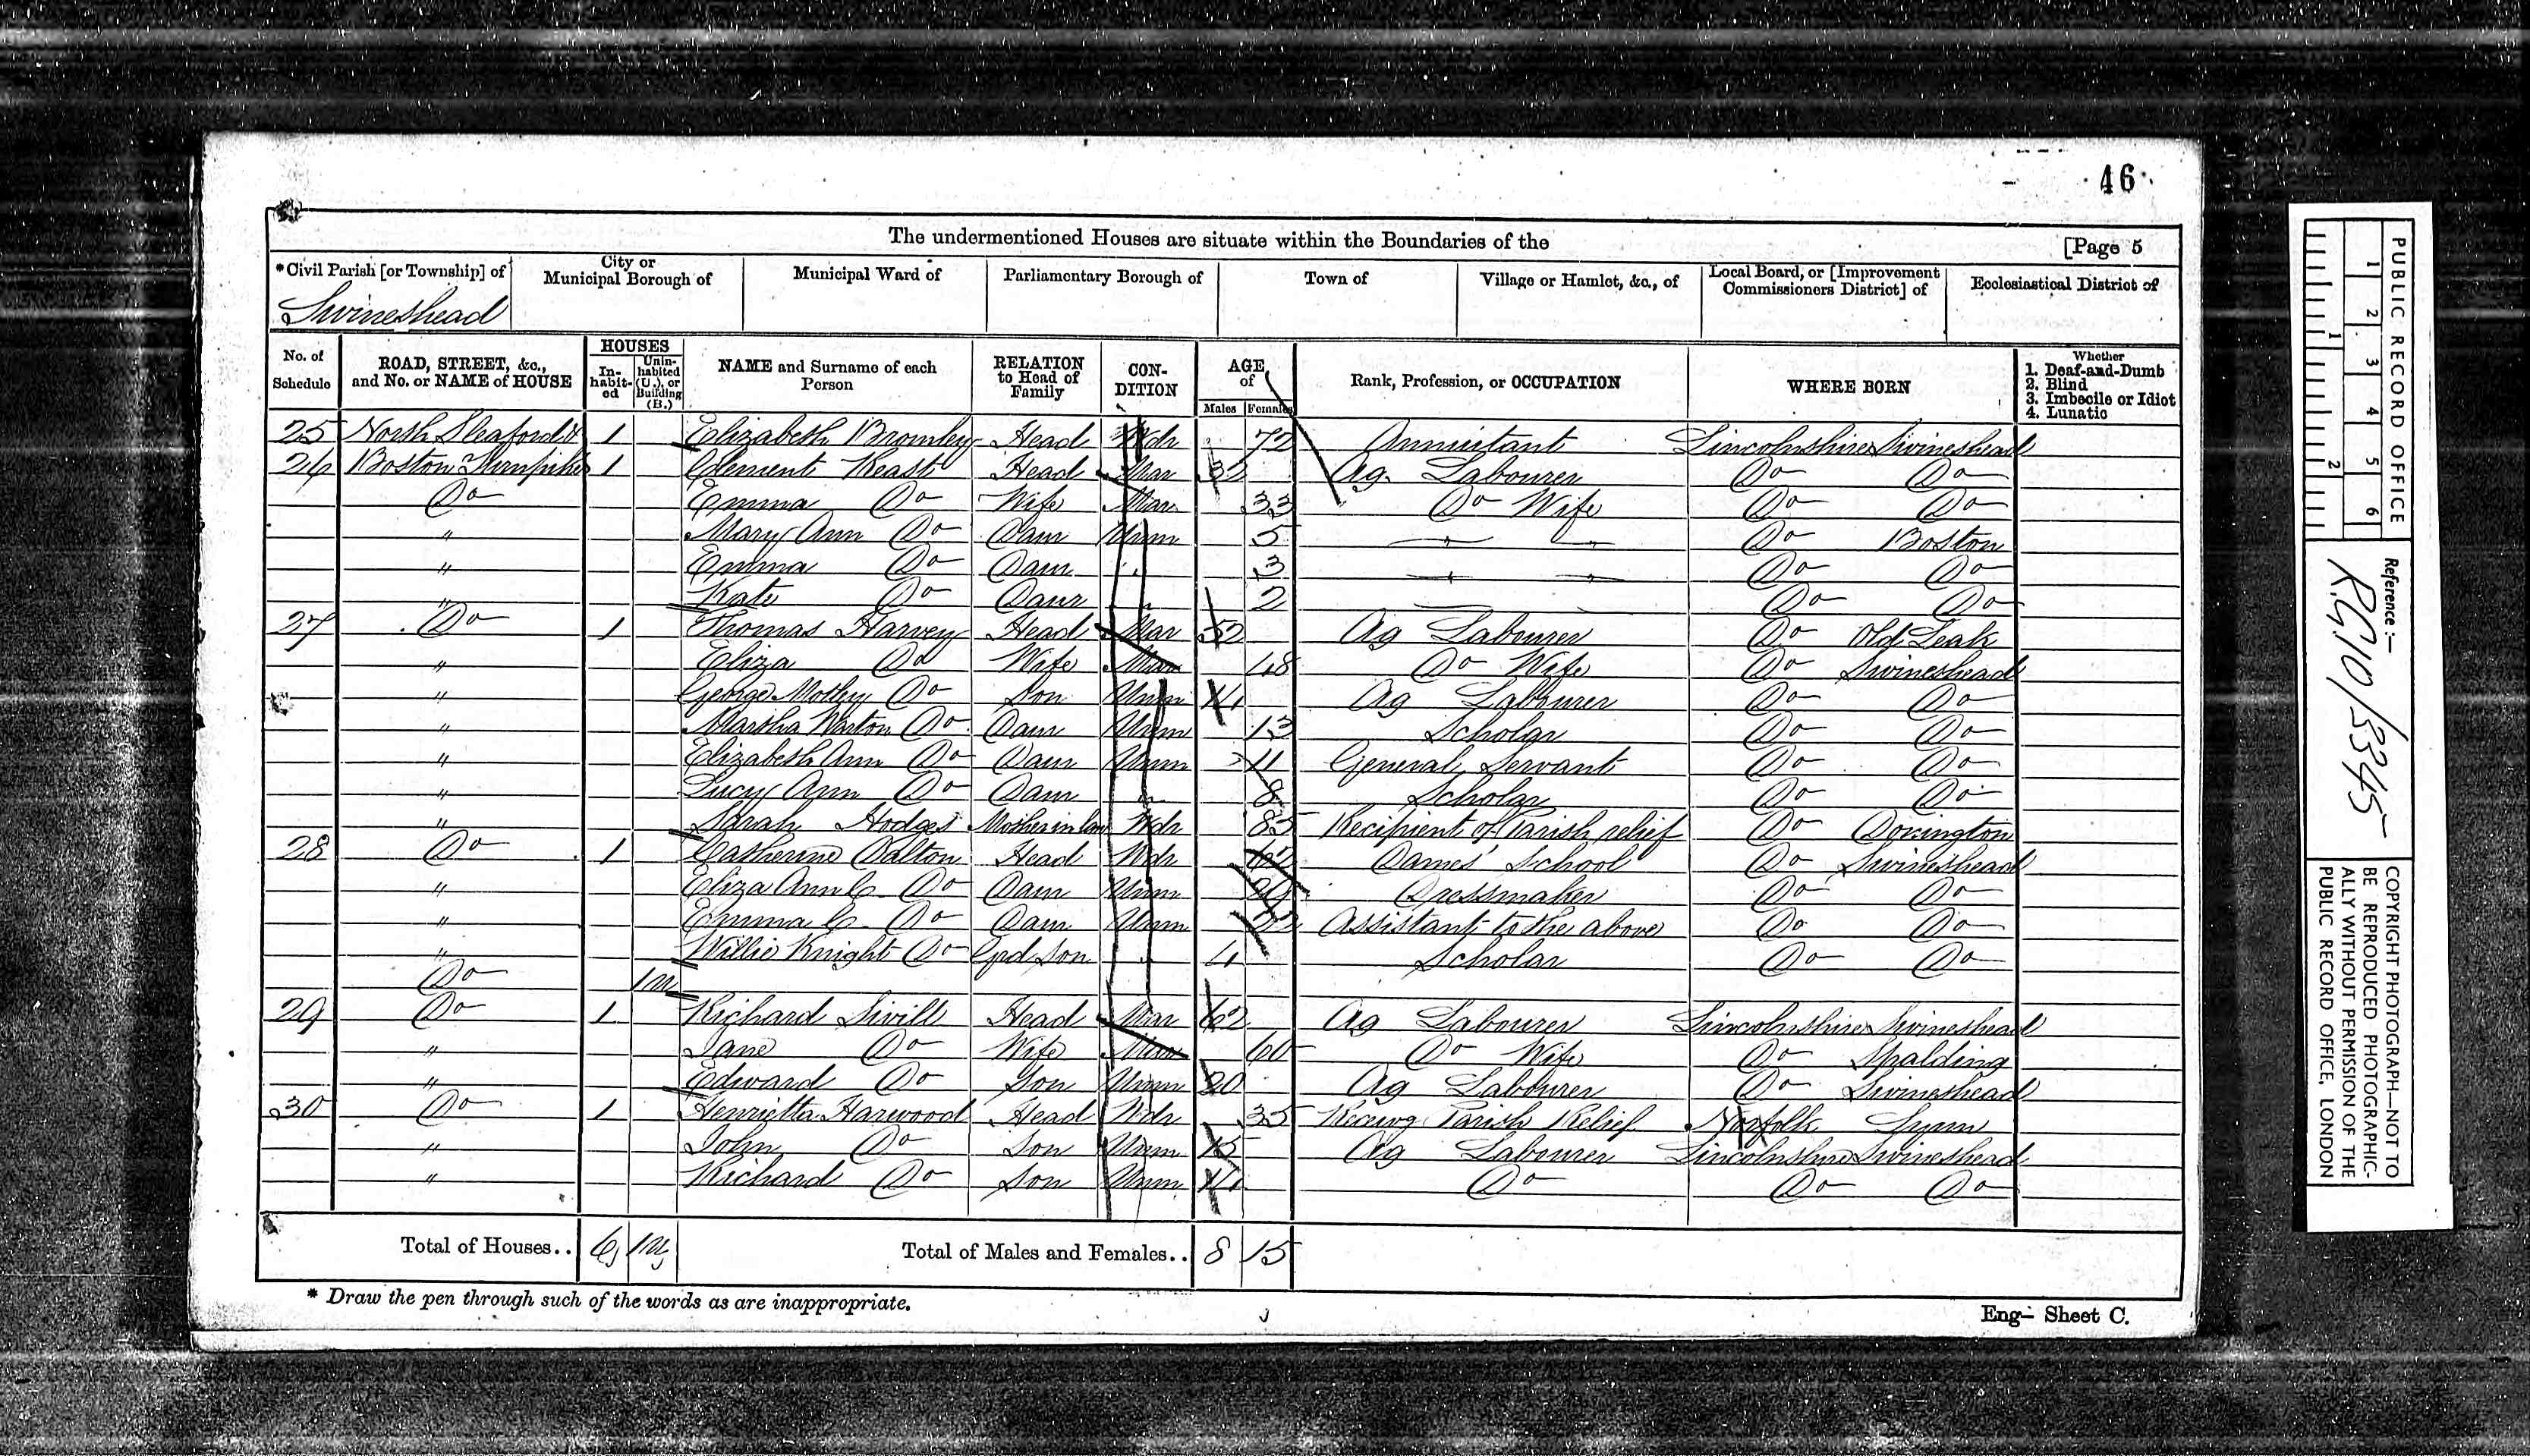 46
The undermentioned Houses are situate within the Boundaries of the
[Page 5
*Civil Parish [or Township] of
City or Municipal Borough of
Municipal Ward of
Parliamentary Borough of
Town of
Village or Hamlet, &c., of
Local Board, or [Improvement Commissioners District] of
Ecclesiastical District of
Swineshead
No. of Schedule
ROAD, STREET, &c., and No. or NAME of HOUSE
HOUSES
In-habit-ed
Unin-habited (U.), or Building (B.)
NAME and Surname of each Person
RELATION to Head of Family
CON-DITION
AGE of
Males
Females
Rank, Profession, or OCCUPATION
WHERE BORN
Whether
1. Deaf-and-Dumb
2. Blind
3. Imbecile or Idiot
4. Lunatic
25 North Sleaford & 1 Elizabeth Bromley Head Wdr 72 Annuitant Lincolnshire Swineshead
26 Boston Turnpike 1 Clement Keast Head Mar 32 Ag. Labourer Do Do
Do Emma Do Wife Mar 33 Do Wife Do Do
" Mary Ann Do Daur Unm 5 Do Boston
" Emma Do Daur 3 Do Do
" Kate Do Daur 2 Do Do
27 Do 1 Thomas Harvey Head Mar 52 Ag Labourer Do Old Leak
" Eliza Do Wife Mar 48 Do Wife Do Swineshead
" George Motley Do Son Unm Ag Labourer Do Do
" Martha Warton Do Daur Unm 13 Scholar Do Do
" Elizabeth Ann Do Daur Unm 11 General Servant Do Do
" Lucy Ann Do Daur " 8 Scholar Do Do
" Sarah Hodges Mother in law Wdr 85 Recipient of Parish relief Do Donington
28 Do 1 Catherine Dalton Head Wdr Dames' School Do Swineshead
" Eliza Ann C. Do Daur Unm Dressmaker Do Do
" Emma C. Do Daur Unm Assistant to the above Do Do
" Willie Knight Do Grd Son 4 Scholar Do Do
Do 1 U
29 Do 1 Richard Sivill Head Mar 62 Ag Labourer Lincolnshire Swineshead
" Jane Do Wife Mar 60 Do Wife Do Spalding
" Edward Do Son Unm 20 Ag Labourer Do Swineshead
30 Do 1 Henrietta Harwood Head Wdr 35 Recievg Parish Relief Norfolk Lynn
" John Do Son Unm 15 Ag Labourer Lincolnshire Swineshead
" Richard Do Son Unm Do Do Do
Total of Houses.. 6 1 U
Total of Males and Females.. 8 15
* Draw the pen through such of the words as are inappropriate.
Eng— Sheet C.
PUBLIC RECORD OFFICE
1 2 3 4 5 6
1 2
Reference:—
R.G. 10/3345
COPYRIGHT PHOTOGRAPH—NOT TO
BE REPRODUCED PHOTOGRAPHIC-
ALLY WITHOUT PERMISSION OF THE
PUBLIC RECORD OFFICE, LONDON